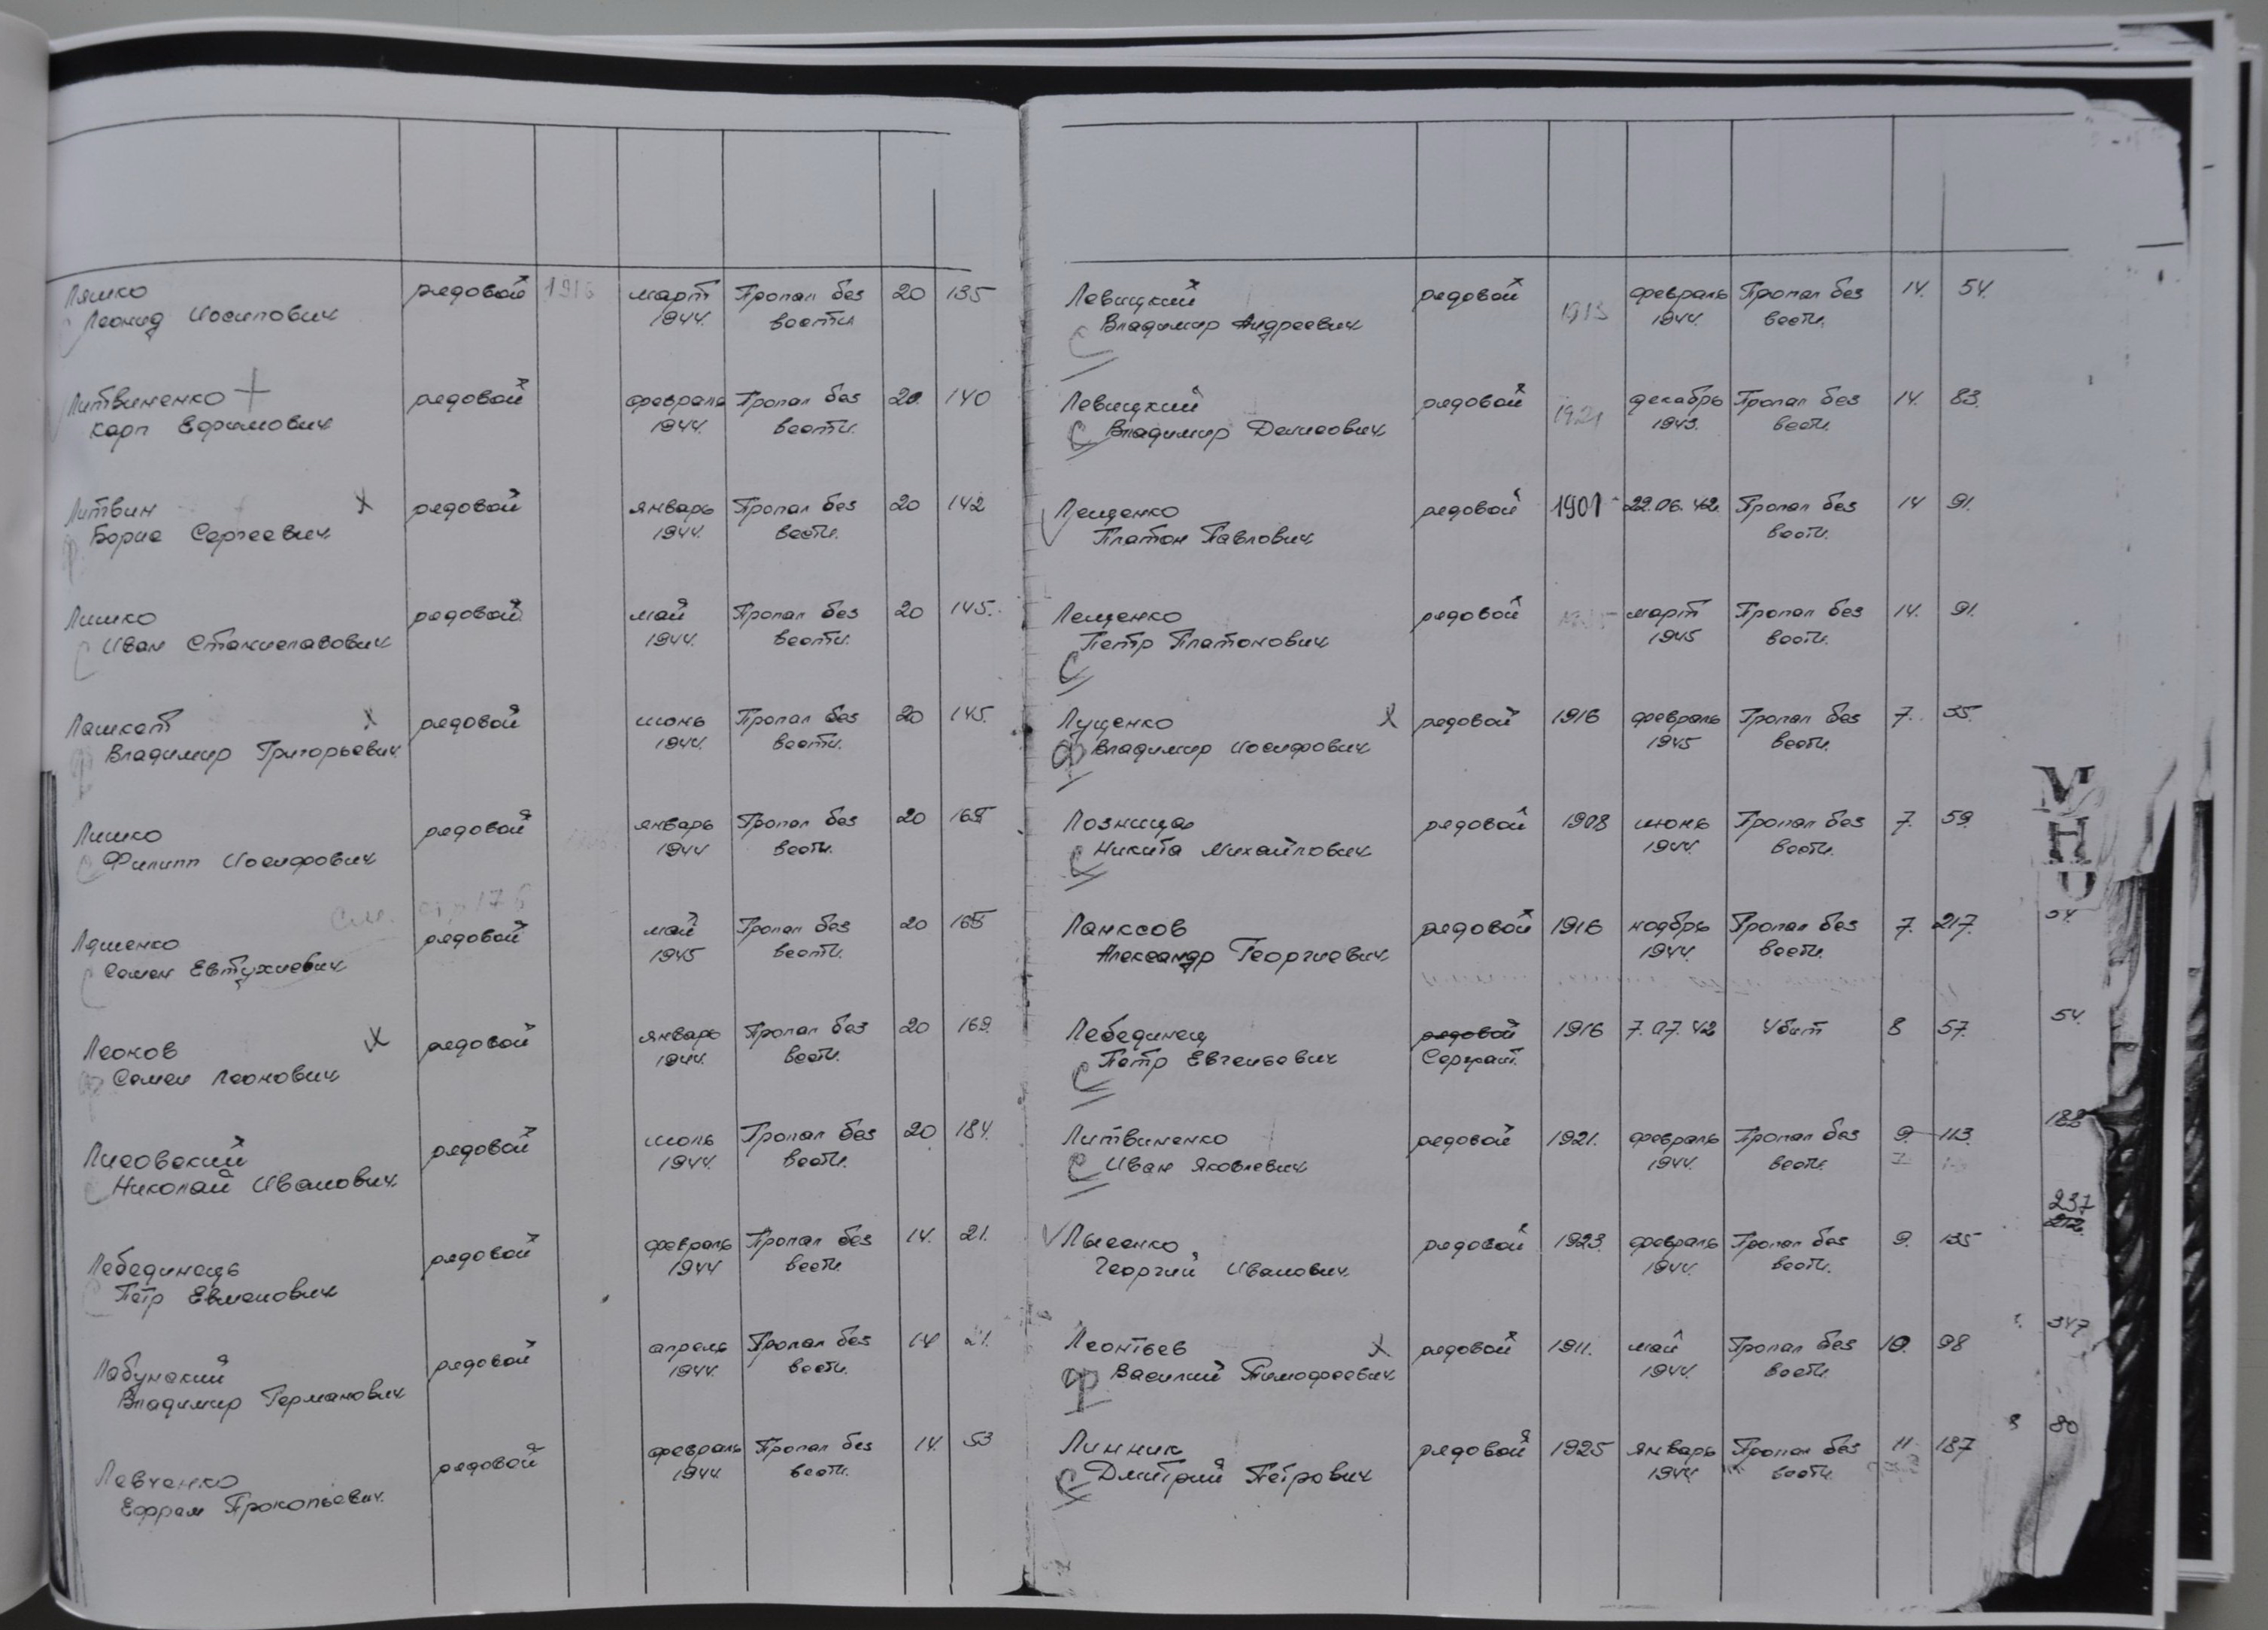 Ляшко рядовой 1916 март Пропал без 20 135
Леонид Иосипович 1944. вести
Литвиненко + рядовой февраль Пропал без 20. 140
Карп Ефимович 1944. вести.
Литвин х рядовой январь Пропал без 20 142
Борис Сергеевич 1944. вести.
Лишко рядовой май Пропал без 20 145.
С Иван Станиславович 1944. вести.
Лашкет х рядовой июнь Пропал без 20 145.
ф Владимир Григорьевич 1944. вести.
Лишко рядовой январь Пропал без 20
С Филипп Иосифович 1944 вести.
см. стр 178
Ляшенко рядовой май Пропал без 20 165
С Семен Евтухиевич 1945 вести.
Леонов х рядовой январь Пропал без 20 169.
ф Семен Леонович 1944. вести.
Лисовский рядовой июль Пропал без 20 184.
С Николай Иванович 1944. вести.
Лебединець рядовой февраль Пропал без 14. 21.
С Петр Евменович 1944 вести
Лабунский рядовой апрель Пропал без 14 21.
Владимир Германович 1944. вести.
Левченко рядовой февраль Пропал без 14. 53
Ефрем Прокопьевич. 1944. вести.
Левицкий рядовой 1913 февраль Пропал без 14. 54.
С Владимир Андреевич 1944. вести.
Левицкий рядовой 1921 декабрь Пропал без 14. 83.
С Владимир Денисович 1943. вести.
Лещенко рядовой 1901 22.06.42. Пропал без 14 91.
Платон Павлович вести.
Лещенко рядовой март Пропал без 14. 91.
С Петр Платонович 1945 вести.
Лущенко х рядовой 1916 февраль Пропал без 7. 35.
ф Владимир Иосифович 1945 вести.
Лозница рядовой 1908 июнь Пропал без 7. 59.
С Никита Михайлович 1944. вести.
Ланксов рядовой 1916 ноябрь Пропал без 7. 217.
Александр Георгиевич 1944. вести.
Лебединец рядовой 1916 7.07.42 Убит 8 57.
С Петр Евгеньевич Сержант.
Литвиненко рядовой 1921. февраль Пропал без 9. 113.
С Иван Яковлевич 1944. вести. 7
Лысенко рядовой 1923. февраль Пропал без 9. 135
Георгий Иванович. 1944. вести.
Леонтьев х рядовой 1911. май Пропал без 10. 98
ф Василий Тимофеевич 1944. вести.
Линник рядовой 1925 январь Пропал без 11 187
С Дмитрий Петрович 1944 вести.
54.
188
237
212
347
80